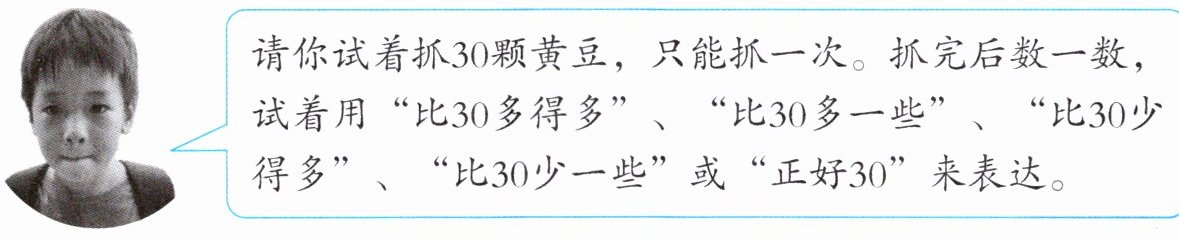 请你试着抓30颗黄豆，只能抓一次。抓完后数一数，
试着用“比30多得多”、“比30多一些”、“比30少
得多”、“比30少一些”或“正好30”来表达。